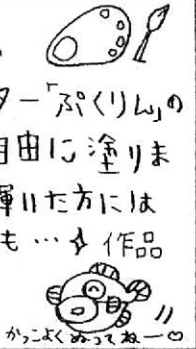 ター「ぷくりん」の
自由に塗りま
輝いた方には
も…✧作品
かっこよくぬってねー♡